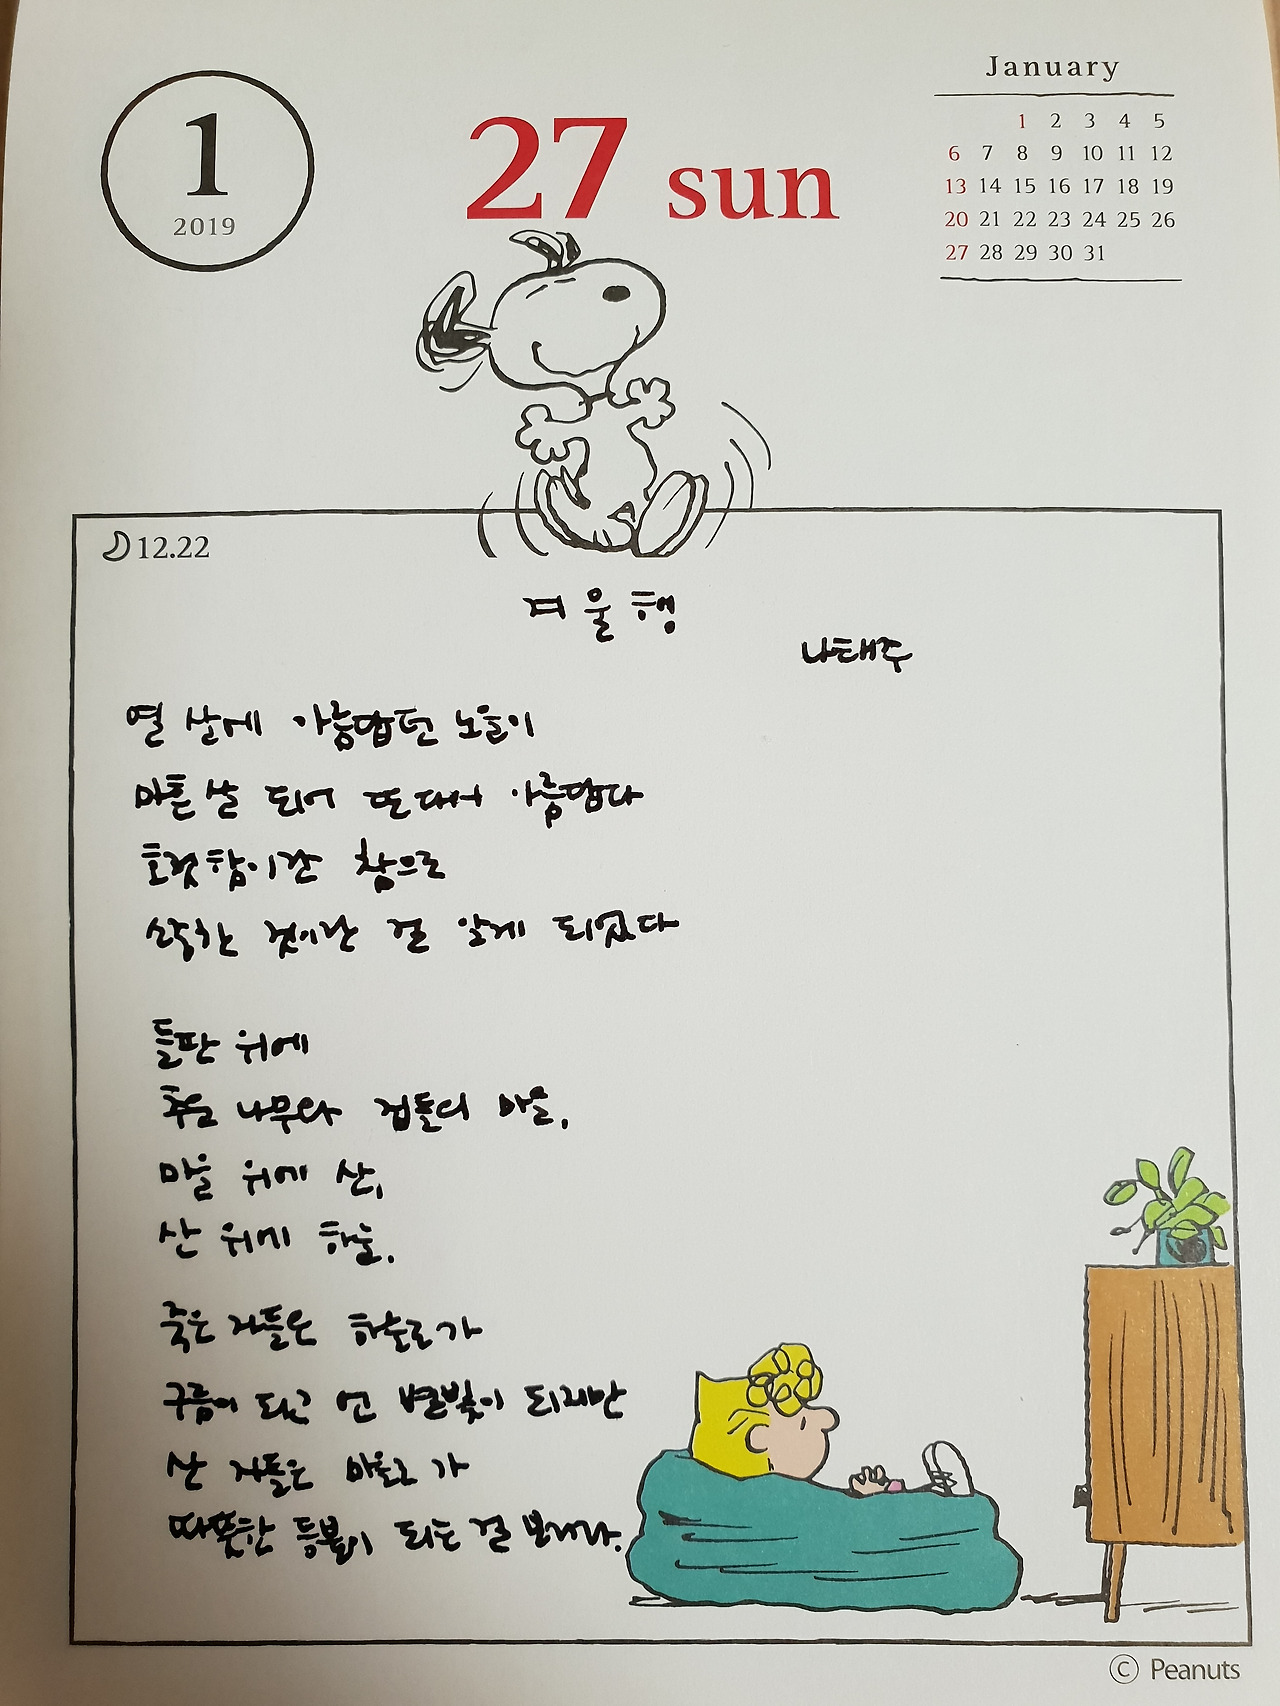 1
2019
27 sun
January
1 2 3 4 5
6 7 8 9 10 11 12
13 14 15 16 17 18 19
20 21 22 23 24 25 26
27 28 29 30 31
12.22
겨울행
나태주
열 살에 아름답던 노을이
마흔 살 되어 또다시 아름답다
호젓함이란 참으로
소중한 것이란 걸 알게 되리라
들판 위에
추운 나무와 집들의 마을,
마을 위에 산,
산 위에 하늘.
죽은 자들은 하늘로 가
구름이 되고 언 별빛이 되지만
산 자들은 마을로 가
따뜻한 등불이 되는 걸 보리라.
© Peanuts